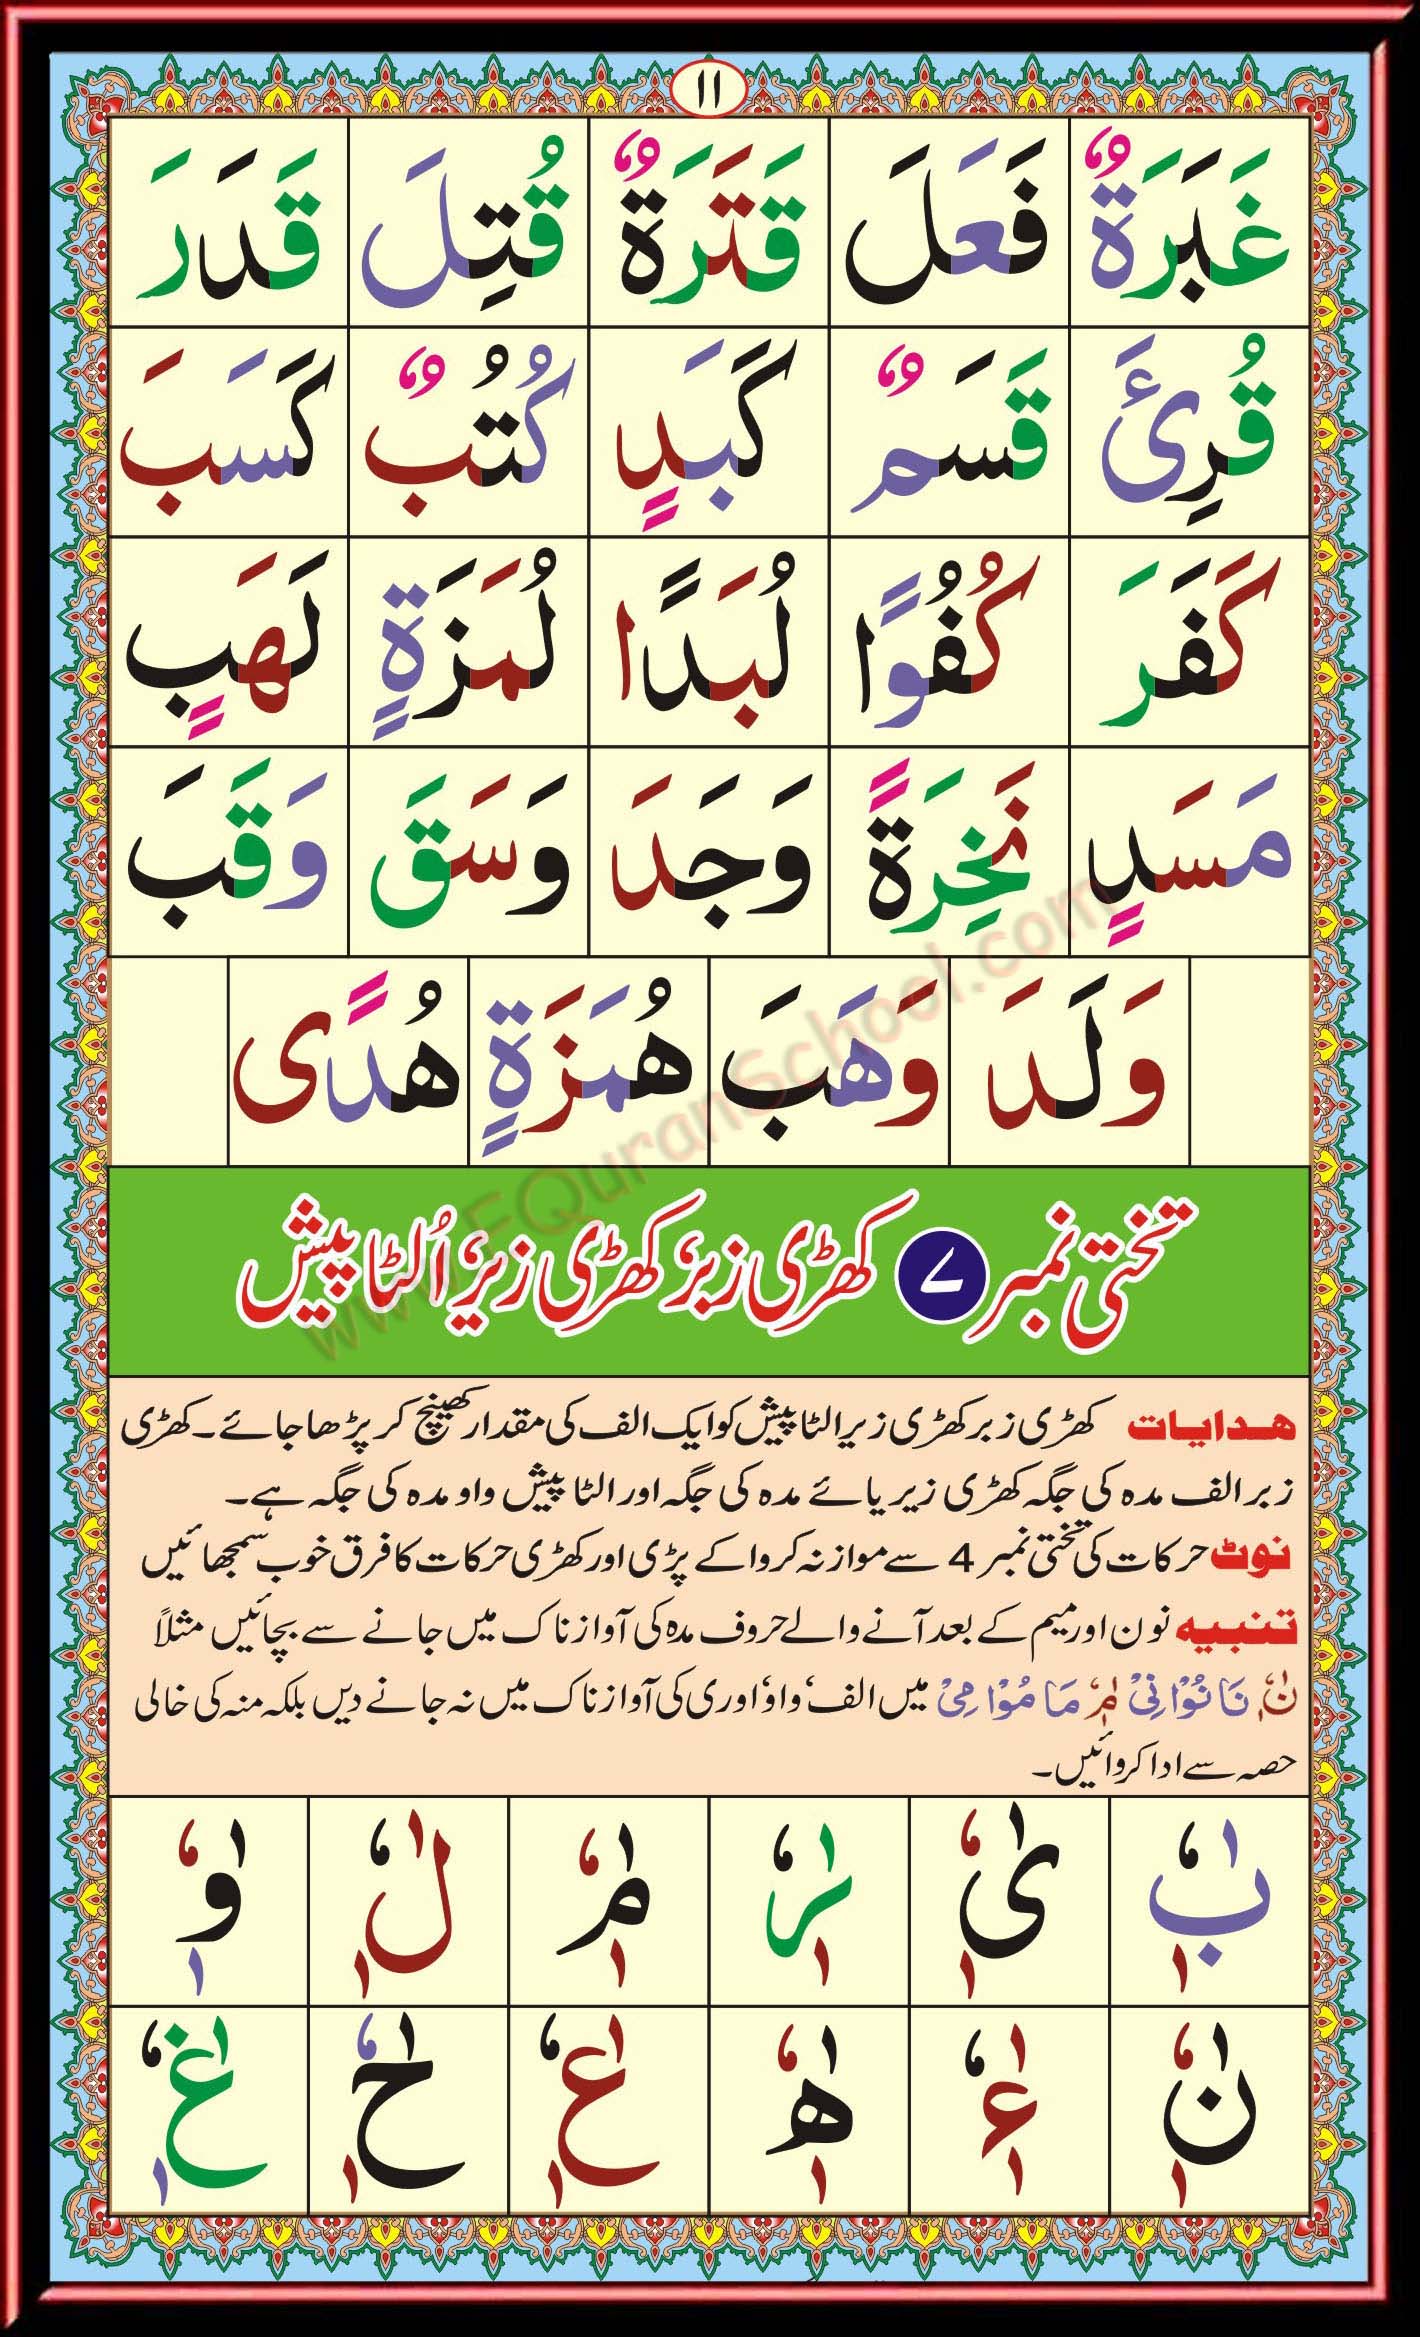 ۱۱
غَبَرَةٌ فَعَلَ قَتَرَةٌ قُتِلَ قَدَرَ
قُرِئَ قَسَمٌ كَبَدٍ كُتُبٌ كَسَبَ
كَفَرَ كُفُوًا لُبَدًا لُمَزَةٍ لَهَبٍ
مَسَدٍ نَخِرَةً وَجَدَ وَسَقَ وَقَبَ
وَلَدَ وَهَبَ هُمَزَةٍ هُدًى
تختی نمبر ۷ کھڑی زبر، کھڑی زیر، اُلٹا پیش
ھدایات کھڑی زبر کھڑی زیر الٹا پیش کو ایک الف کی مقدار کھینچ کر پڑھا جائے۔ کھڑی
زبر الف مدہ کی جگہ کھڑی زیر یائے مدہ کی جگہ اور الٹا پیش واو مدہ کی جگہ ہے۔
نوٹ حرکات کی تختی نمبر 4 سے موازنہ کروا کے پڑی اور کھڑی حرکات کا فرق خوب سمجھائیں
تنبیہ نون اور میم کے بعد آنے والے حروف مدہ کی آواز ناک میں جانے سے بچائیں مثلاً
نٰٖٗ نَا نُوْا نِیْ مٰٖٗ مَا مُوْا مِیْ میں الف، واو، اور ی کی آواز ناک میں نہ جانے دیں بلکہ منہ کی خالی
حصہ سے ادا کروائیں۔
بٰٖٗ یٰٖٗ رٰٖٗ مٰٖٗ لٰٖٗ وٰٖٗ
نٰٖٗ ءٰٖٗ ھٰٖٗ عٰٖٗ حٰٖٗ غٰٖٗ
www.EQuranSchool.com